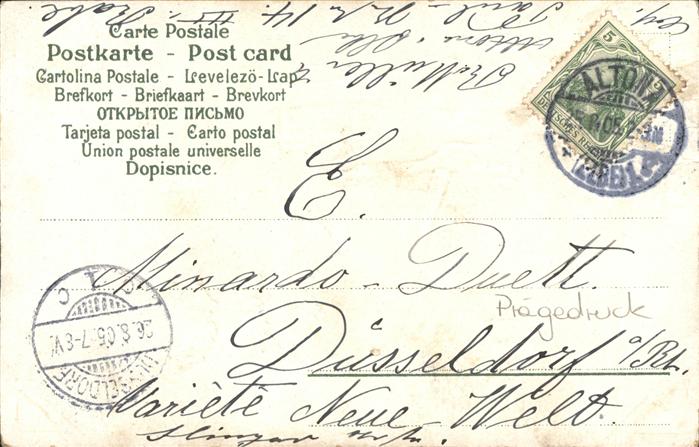 Carte Postale
Postkarte - Post card
Cartolina Postale - Levelezö-Lap
Brefkort - Briefkaart - Brevkort
ОТКРЫТОЕ ПИСЬМО
Tarjeta postal - Carto postal
Union postale universelle
Dopisnice.
Müller
Altona
14
5
DEUTSCHES REICH
ALTONA
(ELBE) 1
E.
Minardo - Duett.
Prägedruck
Düsseldorf a/Rh.
Varieté Neue Welt.
DÜSSELDORF
26.8.05.7-8V.
C